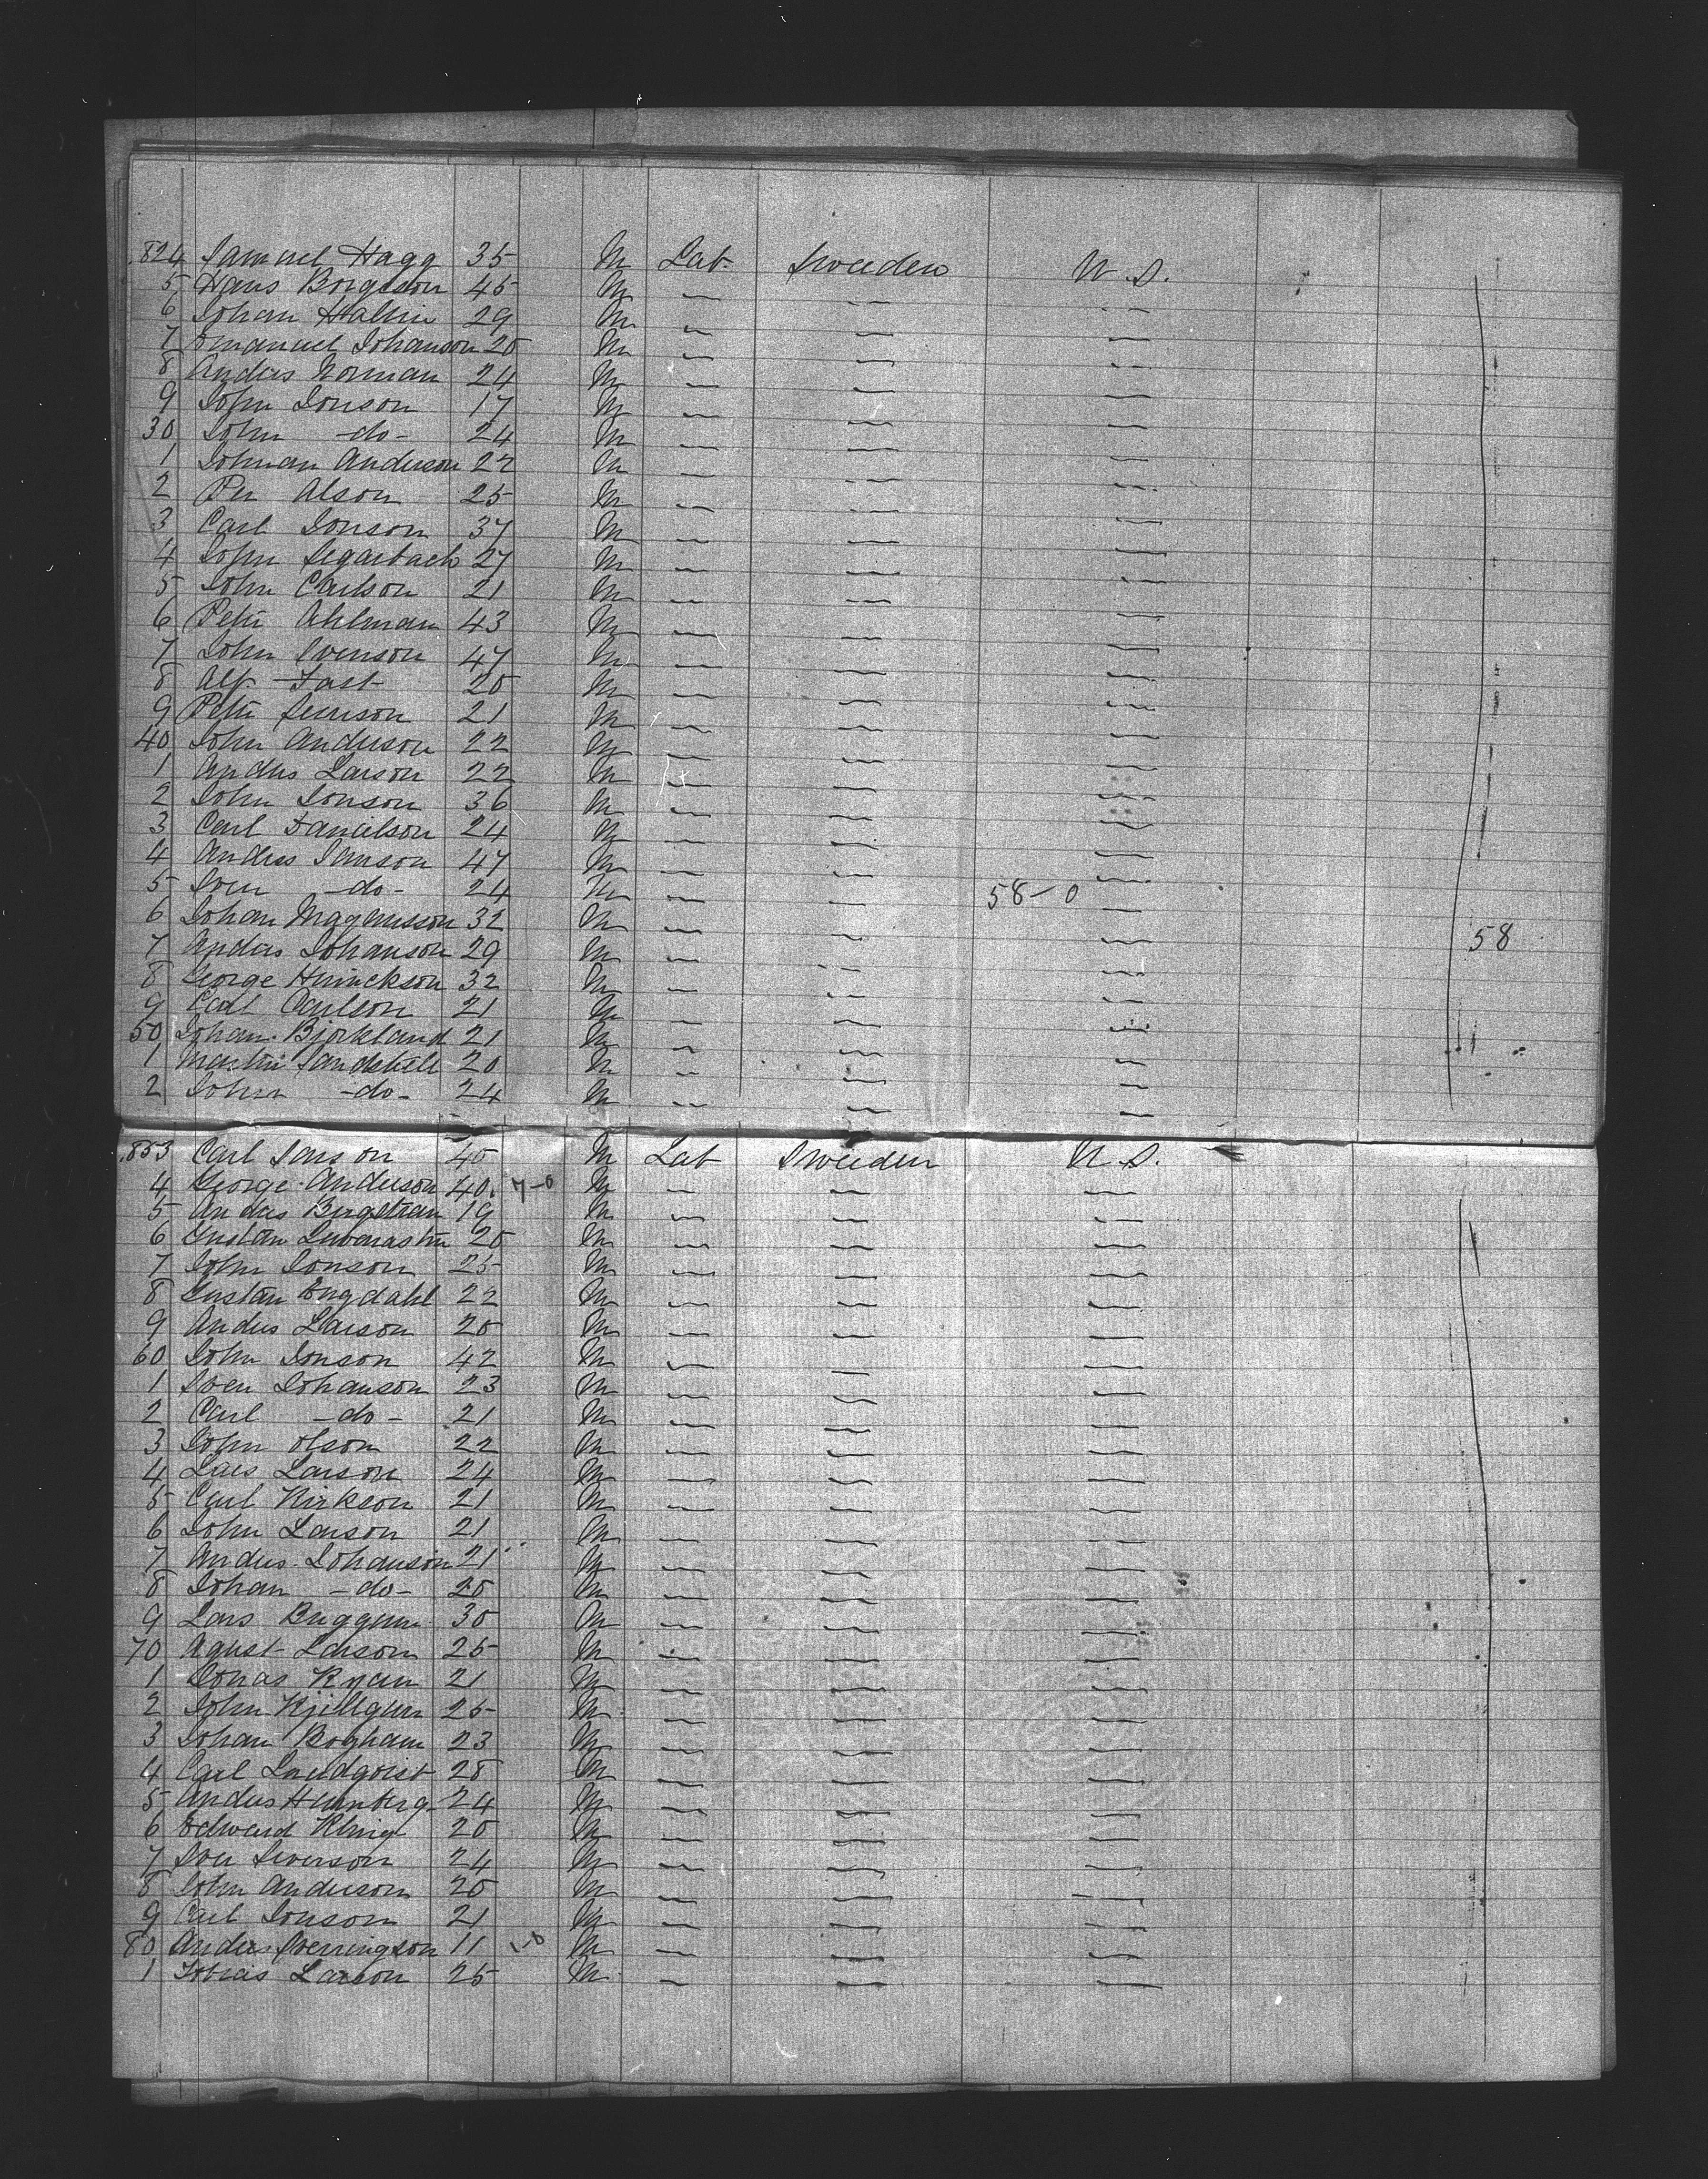 824 Samuel Hagg 35 M Lab. Sweeden U.S.
5 Hans Borgeson 45 M — — —
6 Johan Hallin 29 M — — —
7 Emanuel Johanson 20 M — — —
8 Anders Norman 24 M — — —
9 John Jonson 17 M — — —
30 John -do- 24 M — — —
1 Johnan Anderson 22 M — — —
2 Per Alson 25 M — — —
3 Carl Jonson 37 M — — —
4 John 27 M — — —
5 John Carlson 21 M — — —
6 Peter Ahlman 43 M — — —
7 John Svenson 47 M — — —
8 Alf. Fast 20 M — — —
9 Peter 21 M — — —
40 John Anderson 22 M — — —
1 Andus Larson 22 M — — —
2 John Jonson 36 M — — —
3 Carl Danielson 24 M — — —
4 Andus Janson 47 M — — —
5 Sven -do- 24 M — — 58-0 —
6 Johan Magnusson 32 M — — —
7 Anders Johanson 29 M — — — 58
8 George Hinrickson 32 M — — —
9 Carl Carlson 21 M — — —
50 Johan Bjorkland 21 M — — —
1 Martin 20 M — — —
2 John -do- 24 M — — —
853 Carl Janson 40 M Lab Sweeden U.S.
4 George Anderson 40. 7-0 M — — —
5 Andus Bergstran 19 M — — —
6 Gustav 20 M — — —
7 John Jonson 25 M — — —
8 Gustav Engdahl 22 M — — —
9 Andus Larson 20 M — — —
60 John Jonson 42 M — — —
1 Sven Johanson 23 M — — —
2 Carl -do- 21 M — — —
3 John Olson 22 M — — —
4 Lars Larson 24 M — — —
5 Carl Kirkson 21 M — — —
6 John Larson 21 M — — —
7 Andus Johanson 21 M — — —
8 Johan -do- 20 M — — —
9 Lars 30 M — — —
70 Agust Larson 25 M — — —
1 Jonas Ryan 21 M — — —
2 John Kjillgun 25 M — — —
3 Johan Bogham 23 M — — —
4 Carl Lundqvist 28 M — — —
5 Andus 24 M — — —
6 Edward Kling 20 M — — —
7 Sven Swenson 24 M — — —
8 John Anderson 20 M — — —
9 Carl Jonson 21 M — — —
80 Anders 11 1-0 M — — —
1 Tobias Larson 25 M — — —